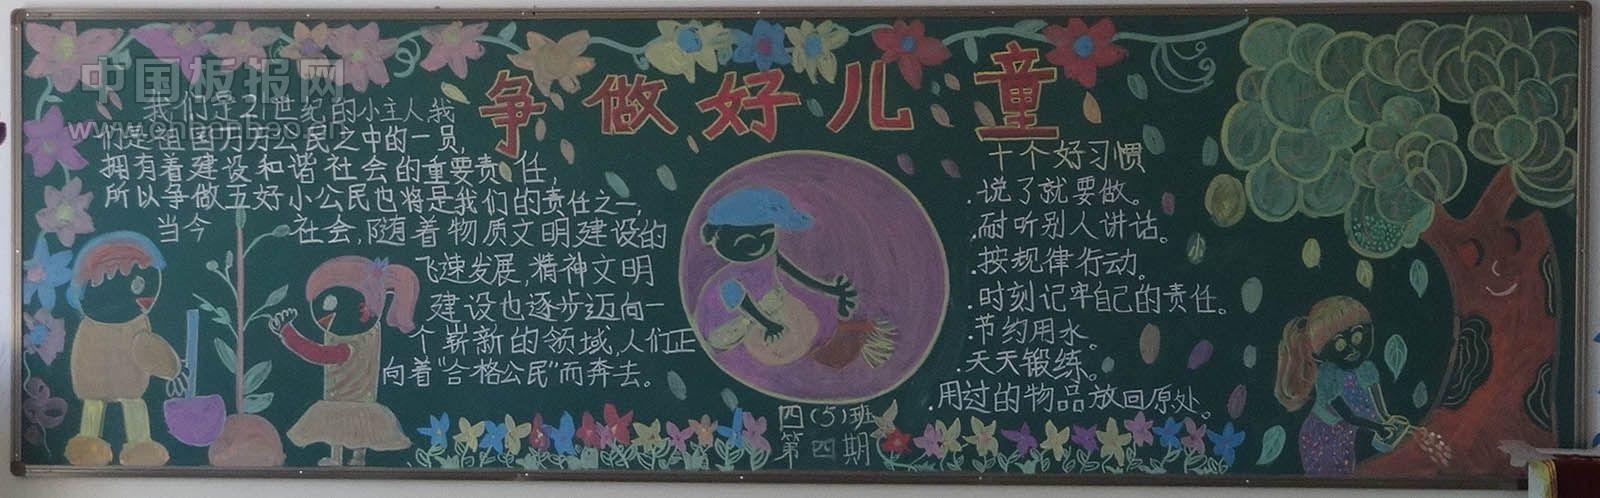 中国板报网
www.chnbanbao.cn
争做好儿童
我们是21世纪的小主人,我
们是祖国万万公民之中的一员,
拥有着建设和谐社会的重要责任,
所以争做五好小公民也将是我们的责任之一,
当今 社会,随着物质文明建设的
飞速发展,精神文明
建设也逐步迈向一
个崭新的领域,人们正
向着"合格公民"而奔去。
十个好习惯
.说了就要做。
.耐听别人讲话。
.按规律行动。
.时刻记牢自己的责任。
.节约用水。
.天天锻练。
.用过的物品放回原处。
四(5)班
第四期